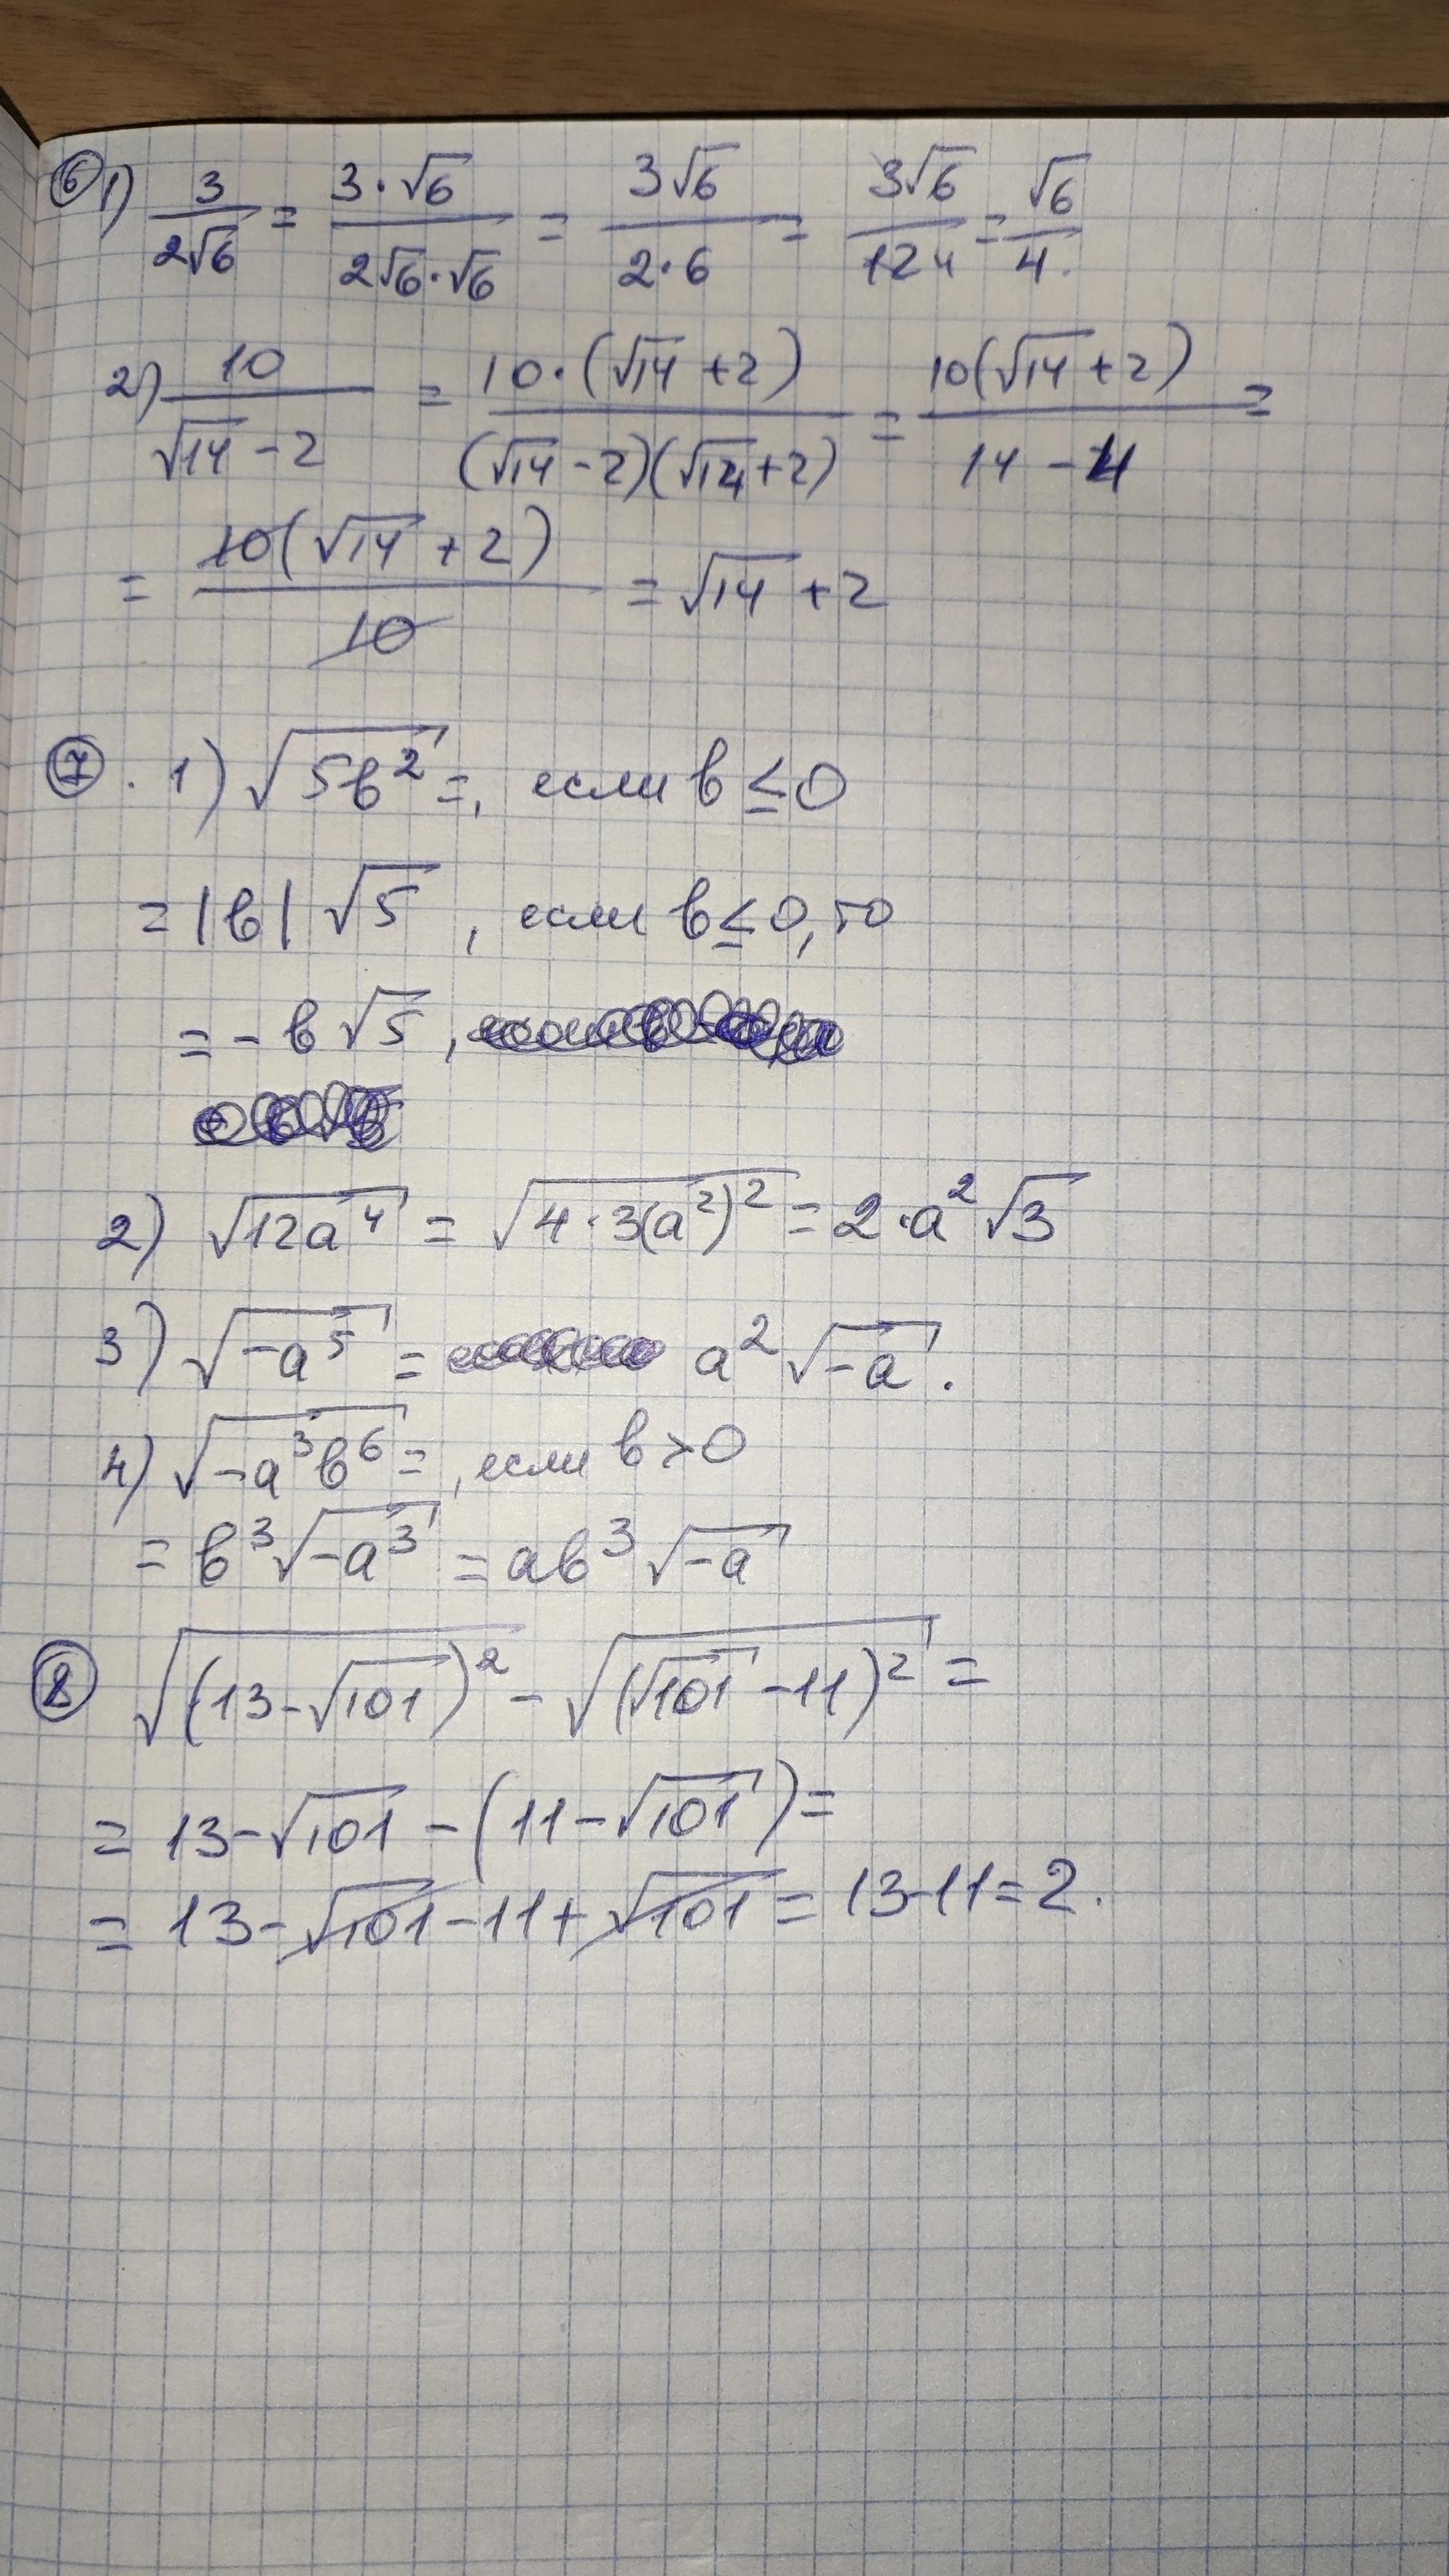 ⑥ 1) 3/(2√6) = (3·√6)/(2√6·√6) = (3√6)/(2·6) = (3√6)/(12 4) = √6/4.
2) 10/(√14 - 2) = (10·(√14 + 2))/((√14 - 2)(√14 + 2)) = (10(√14 + 2))/(14 - 4) =
= (10(√14 + 2))/10 = √14 + 2
⑦. 1) √(5b²) =, если b ≤ 0
= |b| √5, если b ≤ 0, то
= - b √5,
2) √(12a⁴) = √(4·3(a²)²) = 2·a²√3
3) √(-a⁵) = a²√(-a).
4) √(-a³b⁶) =, если b > 0
= b³√(-a³) = ab³√(-a)
⑧ √((13-√101)²) - √((√101 - 11)²) =
= 13-√101 - (11-√101) =
= 13-√101 - 11 + √101 = 13-11 = 2.